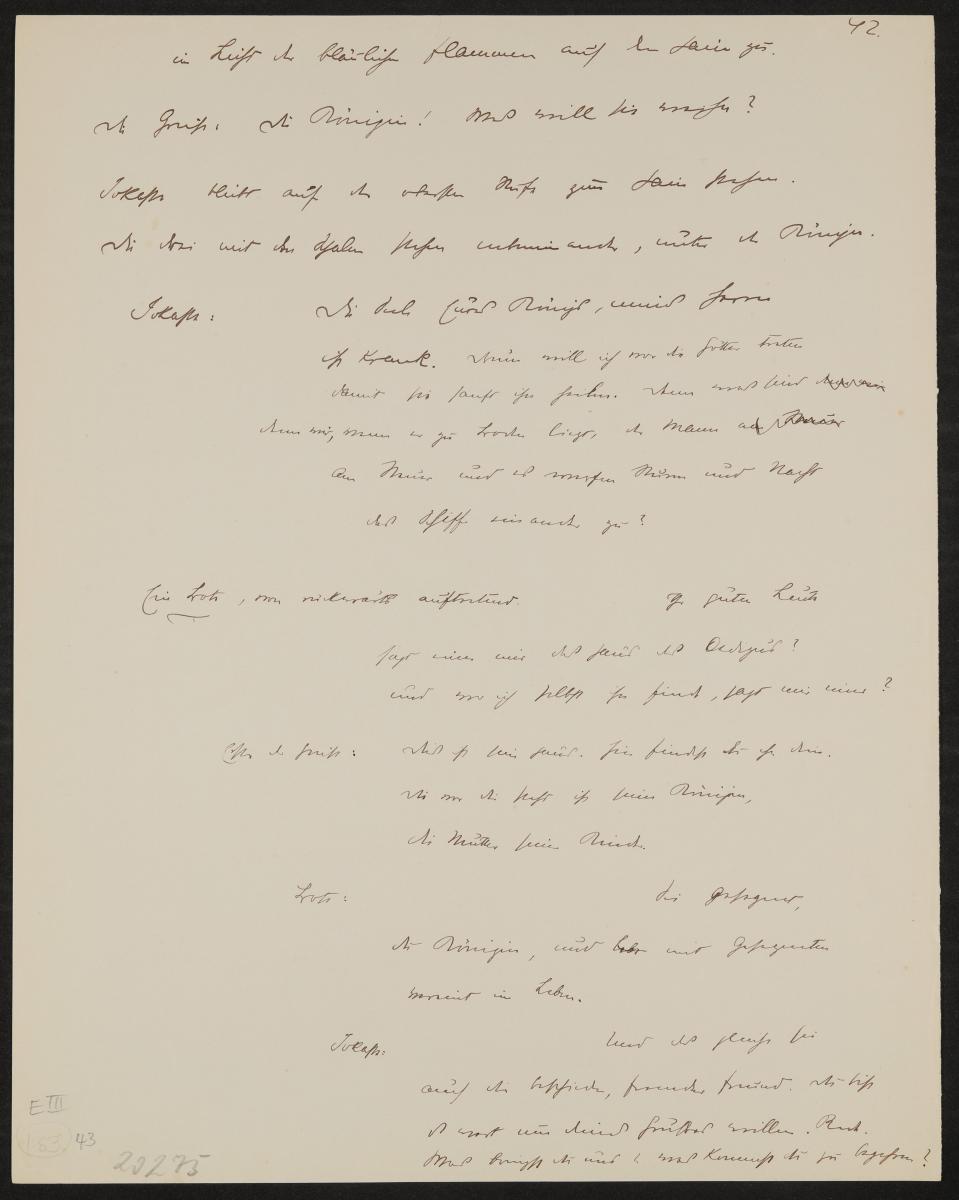 42.
im Licht der bläulichen Flammen auf den Hain zu.
Die Greise: Die Königin! Was will sie opfern?
Jokaste bleibt auf der obersten Stufe zum Hain stehen.
Die drei mit den Schalen stehen nebeneinander, unter der Königin.
Jokaste: Die Seele Eures Königs, meines Herrn
ist krank. Nun will ich vor die Götter treten
damit sie sanft ihn heilen. Denn was sind
denn wir, wenn er zu Boden liegt, der Mann
am Steuer und es werfen Sturm und Nacht
das Schiff einander zu?
Ein Bote, von rückwärts auftretend. Ihr guten Leute
sagt einer mir das Haus des Oedipus?
und wo ich selbst ihn finde, sagt mir einer?
Erster der Greise: Dies ist sein Haus. Hier findest du ihn drin.
Die vor dir steht ist seine Königin,
die Mutter seiner Kinder.
Bote: Sei gesegnet,
du Königin, und lebe mit Gesegneten
vereint im Leben.
Jokaste: Und das gleiche sei
auch dir beschieden, fremder Freund. Du bist
es wert um deines Grußes willen. Red.
Was bringst du uns & was kommst du zu begehren?
E III
183 43
20275